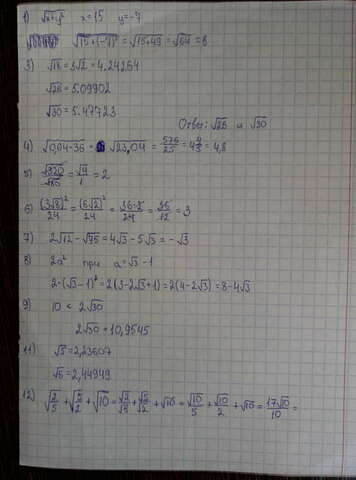 1) √x+y² x=15 y=-7
√15+(-7)² = √15+49 = √64 = 8
3) √18 = 3√2 = 4.24264
√26 = 5.09902
√30 = 5.47723
Ответ: √26 и √30
4) √0,04·36 = √23,04 = 576/25 = 4 4/5 = 4,8
5) √220/√55 = √4/1 = 2
6) (3√8)²/24 = (6√2)²/24 = 36·2/24 = 36/12 = 3
7) 2√12 - √75 = 4√3 - 5√3 = -√3
8) 2a² при a = √3 - 1
2·(√3-1)² = 2(3-2√3+1) = 2(4-2√3) = 8-4√3
9) 10 < 2√30
2√30 = 10,9545
11) √5 = 2,23607
√6 = 2,44949
12) √2/5 + √5/2 + √10 = √2/√5 + √5/√2 + √10 = √10/5 + √10/2 + √10 = 17√10/10 =